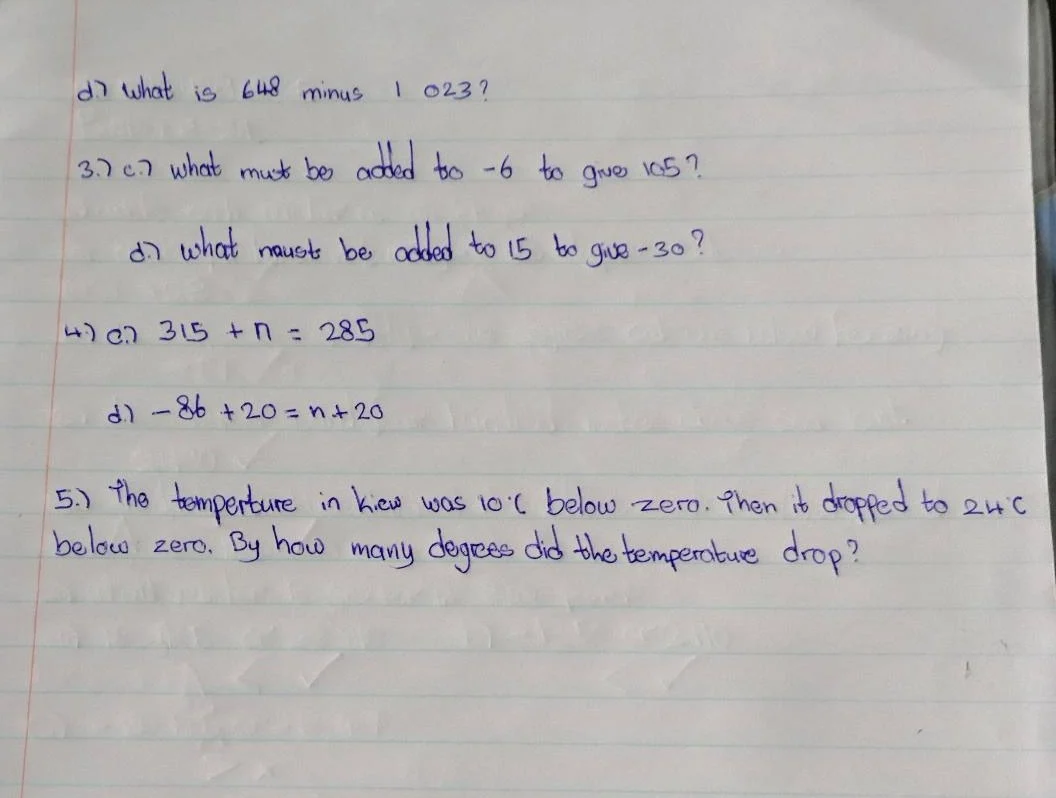 d.) What is 648 minus 1 023?
3.) c.) What must be added to -6 to give 105?
d.) What naust be added to 15 to give -30?
4.) c.) 315 + n = 285
d.) -86 + 20 = n + 20
5.) The temperture in Kiew was 10°C below zero. Then it dropped to 24°C
below zero. By how many degrees did the temperature drop?